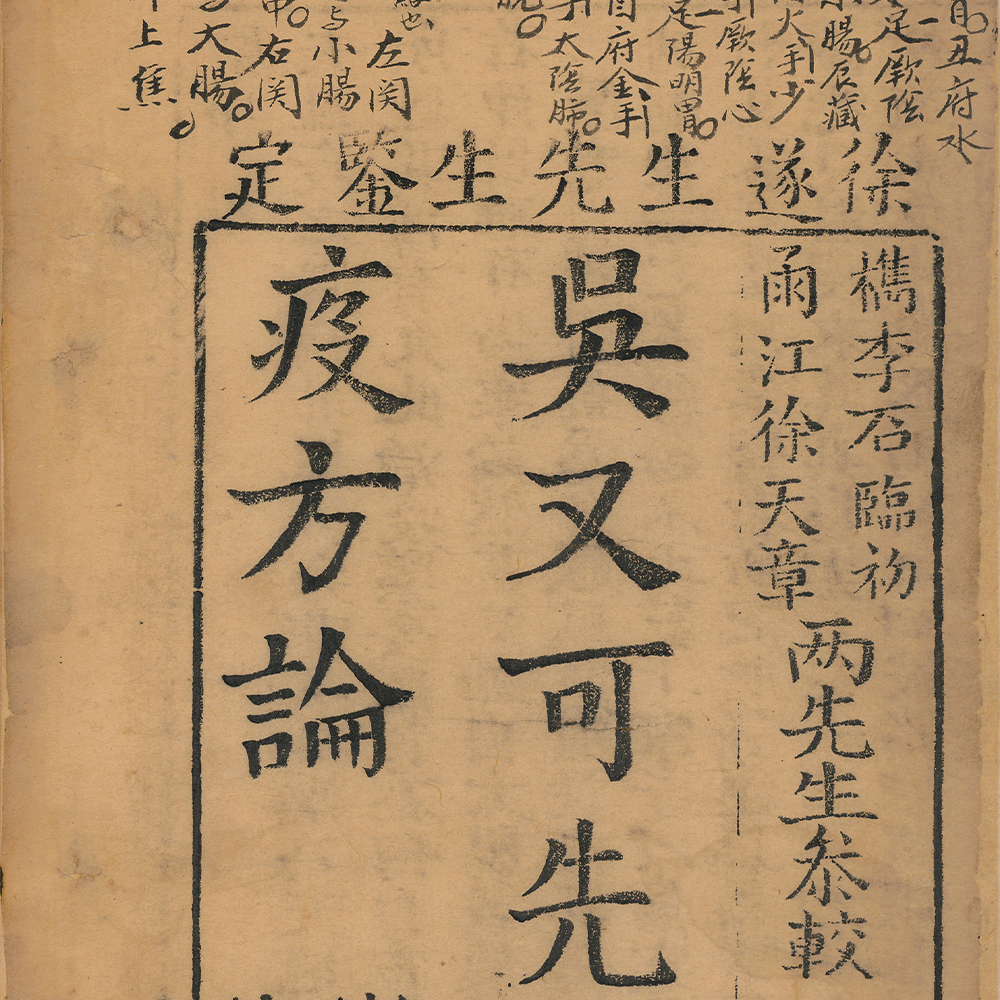 丑府水
足厥陰
小腸。辰藏
火手少
厥陰心
足陽明胃。
府金手
手太陰肺。
左関
与小腸
右関
大腸。
上焦
徐遂生先生鑒定
檇李石臨初
甬江徐天章
两先生叅較
吳又可先
疫方論